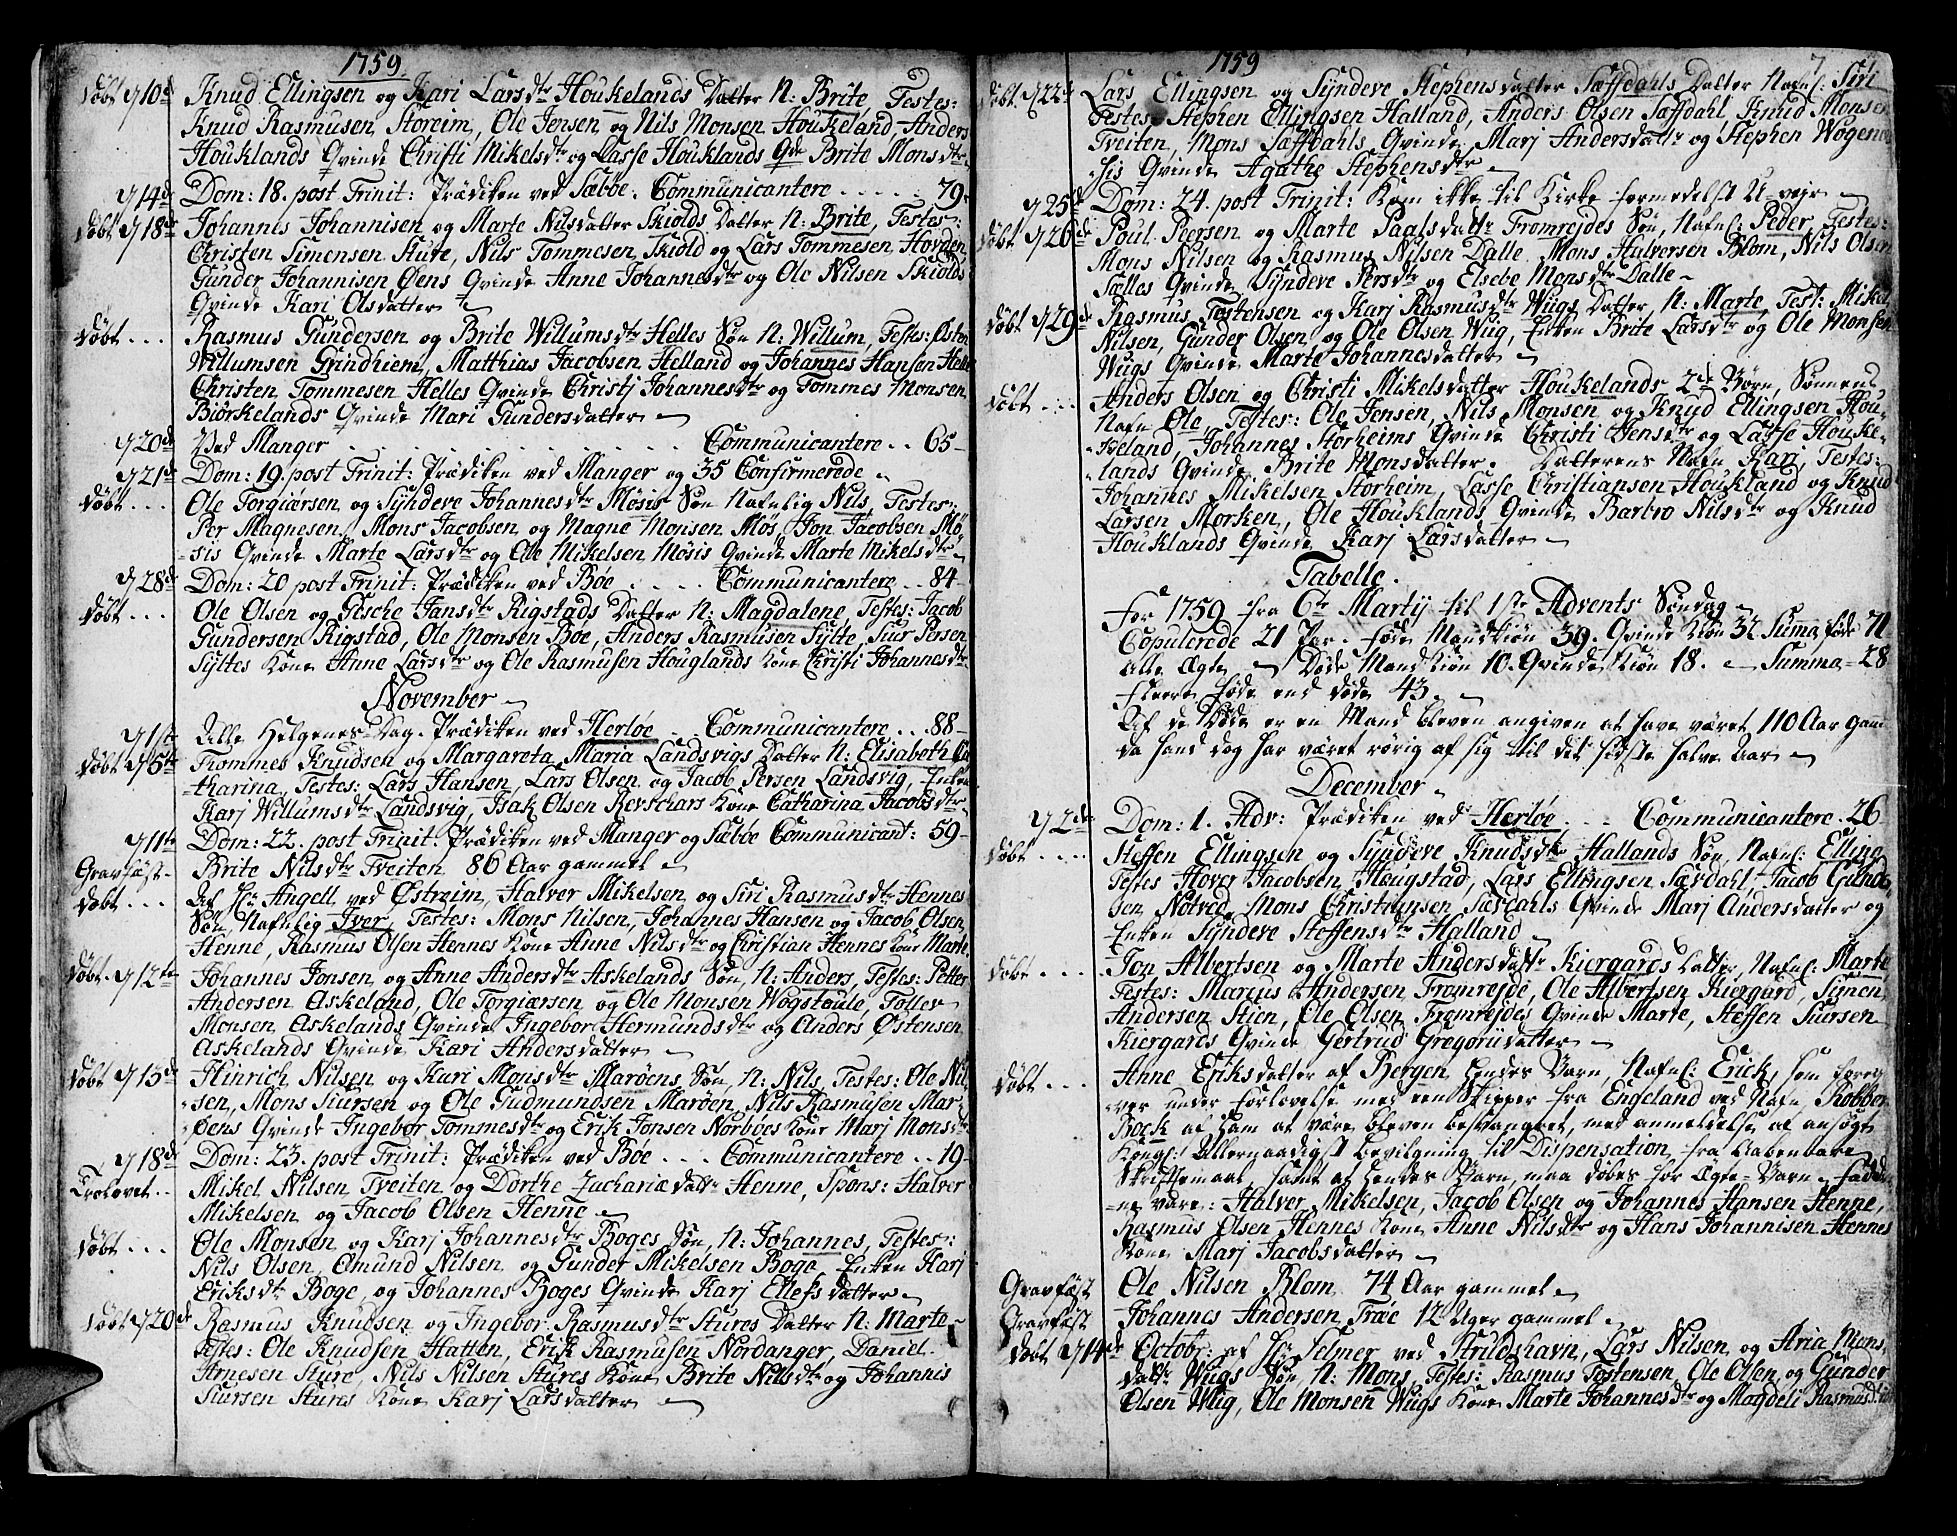 1759.
Døbt d 10de Knud Ellingsen og Kari Larsdtr Houkelands Datter N: Brite, Testes:
Knud Rasmusen Storeim, Ole Jensen og Nils Monsen Houkeland, Anders
Houklands Qvinde Christi Mikelsdtr og Lasse Houklands Qde Brite Monsdtr
d 14de Dom: 18. post Trinit: Prædiken ved Sæbøe. Communicantere . . . . . 79.
Døbt d 18de Johannes Johannisen og Marte Nilsdatter Skiolds Datter N: Brite, Testes:
Christen Simensen Sture, Nils Tommesen Skiold og Lars Tommesen Hovden
Gunder Johannisen Øens Qvinde Anne Johannesdtr og Ole Nilsen Skiolds
Qvinde Kari Olsdatter
Døbt . . . Rasmus Gundersen og Brite Willumsdtr Helles Søn N: Willum, Testes: Østen
Willumsen Grindhiem, Matthias Jacobsen Helland og Johannes Hansen Helle
Christen Tommesen Helles Qvinde Christj Johannesdtr og Tommes Monsen
Biørkelands Qvinde Mari Gundersdatter
d 20de Ved Manger . . . . . . . . . . Communicantere . . 65
d 21de Dom: 19. post Trinit: Prædiken ved Manger og 35 Confirmerede
Døbt . . . Ole Torgiørsen og Syndeve Johannesdtr Møsis Søn Nafnlig Nils, Testes:
Per Magnesen, Mons Jacobsen og Magne Monsen Møs, Jon Jacobsen Mø-
-sis Qvinde Marte Larsdtr og Ole Mikelsen Møsis Qvinde Marte Mikelsdtr
d 28de Dom: 20 post Trinit: Prædiken ved Bøe . . . . Communicantere . . 84
Døbt . . . Ole Olsen og Gesche Jansdtr Rigstads Datter N: Magdalene, Testes: Jacob
Gundersen Rigstad, Ole Monsen Bøe, Anders Rasmusen Sylte, Siur Persen
Syltes Kone Anne Larsdtr og Ole Rasmusen Houglands Kone Christi Johannesdtr
November
d 1ste Alle Helgenes-Dag. Prædiken ved Herløe . Communicantere . . . 88
Døbt d 5te Tommes Knudsen og Margareta Maria Landsvigs Datter N: Elisabeth Ca
tharina, Testes: Lars Hansen, Lars Olsen og Jacob Persen Landsvig, Enken
Karj Willumsdtr Landsvig, Isak Olsen Kone Catharina Jacobsdtr
d 11te Dom: 22. post Trinit: Prædiken ved Manger og Sæbøe Communicant: 59
Gravfæst. Brite Nilsdtr Tveiten 86 Aar gammel
Døbt . . . Af Hr Angell ved Østreim, Halver Mikelsen og Siri Rasmusdtr Hennes
Søn, Nafnlig Iver, Testes: Mons Nilsen, Johannes Hansen og Jacob Olsen
Henne, Rasmus Olsen Hennes Kone Anne Nilsdtr og Christian Hennes Kone Marte
Døbt. d 12te Johannes Jonsen og Anne Andersdtr Askelands Søn, N: Anders, Testes: Petter
Andersen Askeland, Ole Torgiærsen og Ole Monsen Wogstøule, Tollev
Monsen Askelands Qvinde Ingebor Hermundsdtr og Anders Østensen
Askelands Qvinde Kari Andersdatter
Døbt d 15de Hinrich Nilsen og Kari Monsdtr Marøens Søn, N: Nils, Testes: Ole Nil-
-sen, Mons Siursen og Ole Gudmundsen Marøen, Nils Rasmusen Mar-
øens Qvinde Ingebor Tommesdtr og Erik Jonsen Norbøes Kone Marj Monsdtr
d 18de Dom: 23. post Trinit: Prædiken ved Bøe . . . Communicantere . . 19
Trolovet. . Mikel Nilsen Tveiten og Dorthe Zachariædattr Henne, Spons: Halver
Mikelsen og Jacob Olsen Henne
Døbt . . . Ole Monsen og Karj Johannesdtr Boges Søn, N: Johannes, Testes:
Nils Olsen, Ømund Nilsen og Gunder Mikelsen Boge Enken Karj
Eriksdtr Boge, og Johannes Boges Qvinde Karj Ellefsdatter
Døbt d 20de Rasmus Knudsen og Ingebor Rasmusdtr Stures Datter N: Marte
Testes: Ole Knudsen Hatten, Erik Rasmusen Nordanger, Daniel
Arnesen Sture, Nils Nilsen Stures Kone Brite Nilsdtr og Johannis
Siursen Stures Kone Karj Larsdatter
1759 7
Døbt. d 22de Lars Ellingsen og Syndeve Stephensdatter Sæffdahls Datter Nafnl: Siri
Testes: Stephen Ellingsen Halland, Anders Olsen Sæfdahl Knud Monsen
Tveiten, Mons Sæffdahls Qvinde Marj Andersdattr og Stephen Wogene
sis Qvinde Agathe Stephensdtr
d 25de Dom: 24. post Trinit: Kom ikke til Kirke formedelst U-vejr
Døbt d 26de Poul Peersen og Marte Paalsdattr Fromrejdes Søn, Nafnl: Peder, Testes:
Mons Nilsen og Rasmus Nilsen Dalle Mons Halversen Blom, Nils Olsen
Sælles Qvinde Syndeve Persdtr og Elsebe Monsdtr Dalle
Døbt d 29de Rasmus Tostensen og Karj Rasmusdtr Wiigs Datter, N: Marte, Test: Mikel
Nilsen, Gunder Olsen og Ole Olsen Wiig, Enken Brite Larsdtr og Ole Monsen
Wiigs Qvinde Marte Johannesdatter
Døbt . . . Anders Olsen og Christi Mikelsdatter Houkelands 2de Børn, Sønnens
Nafn Ole, Testes: Ole Jensen, Nils Monsen og Knud Ellingsen Hou-
-keland Johannes Storheims Qvinde Christi Jensdtr og Lasse Houke-
-lands Qvinde Brite Monsdatter. Datterens Nafn Kari, Testes:
Johannes Mikelsen Storheim, Lasse Christiansen Houkland og Knud
Larsen Morken, Ole Houklands Qvinde Barbro Nilsdtr og Knud
Houklands Qvinde Karj Larsdatter
Tabelle.
For 1759 fra 6te Martij til 1ste Advents Søndag
Copulerede 21 Par. Føde Mandkiøn 39. Qvinde Kiøn 32 Summa føde 71
Alle Ægte Døde Mand Kiøn 10. Qvinde Kiøn 18. Summa = 28
Fleere føde end døde 43.
Af de Døde er en Mand bleven angiven at have været 110 Aar gam
da hand dog har været rørig af sig til det sidste halve Aar
December
d 2de Dom: 1. Adv: Prædiken ved Herløe . . . Communicantere . 26
Døbt . . . . Steffen Ellingsen og Syndeve Knudsdtr Hallands Søn, Nafnl: Elling
Testes Hover Jacobsen Hougstad, Lars Ellingsen Sæfdahl, Jacob Gunde
sen Notved Mons Christensen Sæfdahls Qvinde Marj Andersdatter og
Enken Syndeve Steffensdtr Halland
Døbt . . . . Jon Albertsen og Marte Andersdattr Kiergards Datter, Nafnl: Marte
Testes: Marcus Andersen Fromrejde, Ole Albertsen Kiergard, Simen
Andersen Stien, Ole Olsen Fromrejdes Qvinde Marte, Steffen Siursen
Kiergards Qvinde Gertrud Gregoriidatter
Døbt . . . Anne Eriksdatter af Bergen hendes Barn, Nafnl: Erick, som forgi
ver under Forlovelse med een Skipper fra Engeland ved Nafn Robber
Bock af ham at være bleven besvangret, med anmeldelse at ansøge
Kongl: Allernaadigst bevilgning til Dispensation fra Aabenbare
Skriftemaal samt at hendes Barn maa døbes for Ægte-Barn Fadde
ne vare: Halver Mikelsen, Jacob Olsen og Johannes Hansen Henne,
Rasmus Olsen Hennes Kone Anne Nilsdtr og Hans Johannisen Hennes
Kone Marj Jacobsdatter
Gravfæst Ole Nilsen Blom 74 Aar gammel
Gravfæst Johannes Andersen Træe 12 Uger gammel
Døbt d 14de Octobr: af Hr Selmer ved Strudshavn, Lars Nilsen og Aria Mons
dattr Wiigs Søn N: Mons, Testes: Rasmus Tostensen, Ole Olsen og Gunder
Olsen Wiig, Ole Monsen Wiigs Kone Marte Johannesdtr og Magdeli Rasmusd